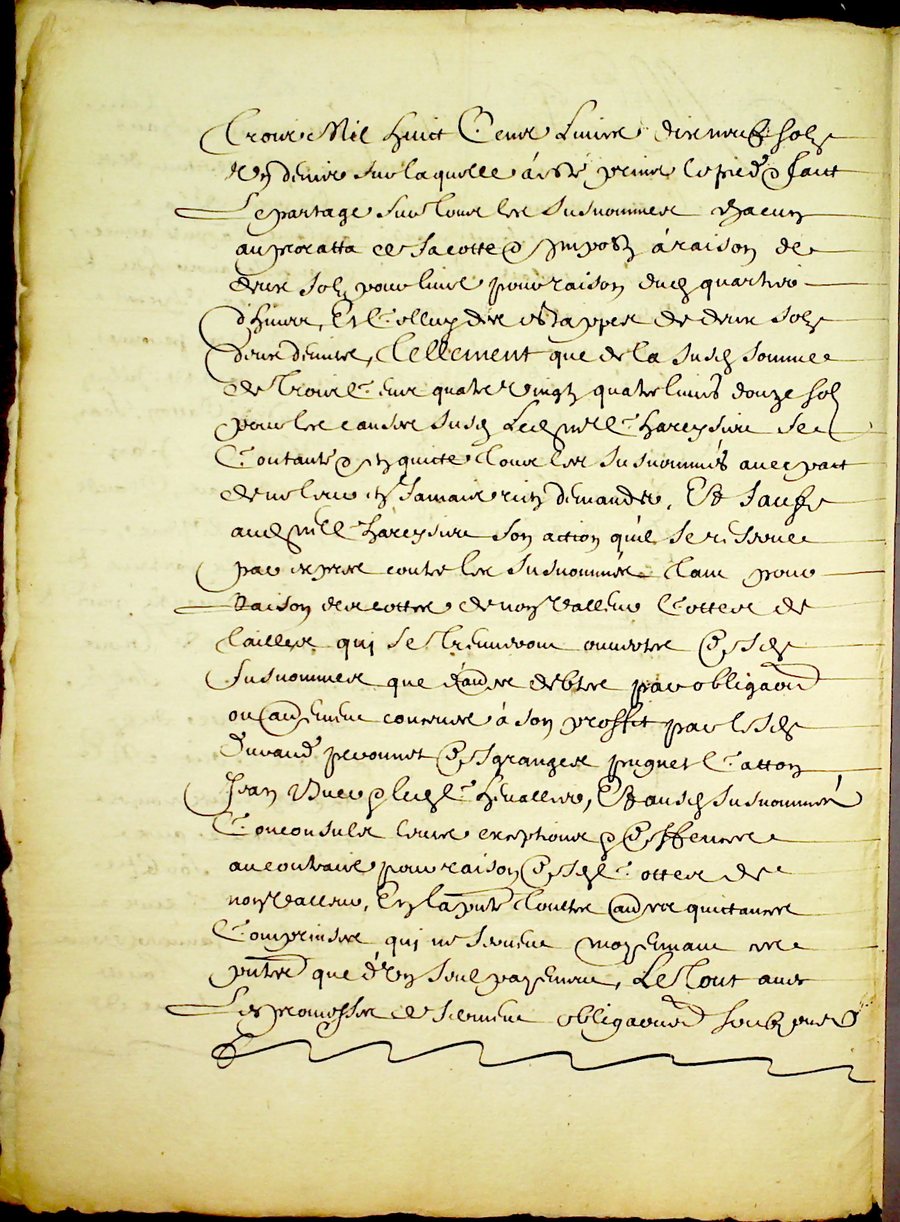 Trois Mil huict Cens Livres dix neuf solz
Un denier sur laquelle a esté prins le pied & faict
Le partage sur tous les susnommes chacun
au proratta de sa cotte & impost à raison de
deux solz pour livre pour raison dud quartier
d'hiver, Et Celluy de de deux solz
deux deniers, Tellement que de la susd somme
de Trois Cens quatre Vingtz quatre livres douze solz
pour les causes susd Led Chareysieu se
Contante & en quicte tous les susnommés avec pact
de ne leur en Jamais rien demander, Et sauf
aud Chareysieu son action qu'il se reserve
par exprés contre les susnommés tant pour
Raison des cottes de non valleur Cottes de
tailles qui se Treuveront ouvertes & desd
susnommes que d'aues debtes par obliga[on]
ou au[em]ent conceues à son proffit par lesd
Duraud peronnet & desgranges pugnet Catton
Jean Buer & led Chevallier, Et ausd susnommés
Conconsulz leurs exceptions & deffences
au contraire pour raison desd Cottes de
non valleur, En la pnte toutes au[es] quittances
Comprinses qui ne servent moyenant ces
pntes que d'Un seul payement, Le Tout avec
Les promesses & serment obliga[ons] soubz